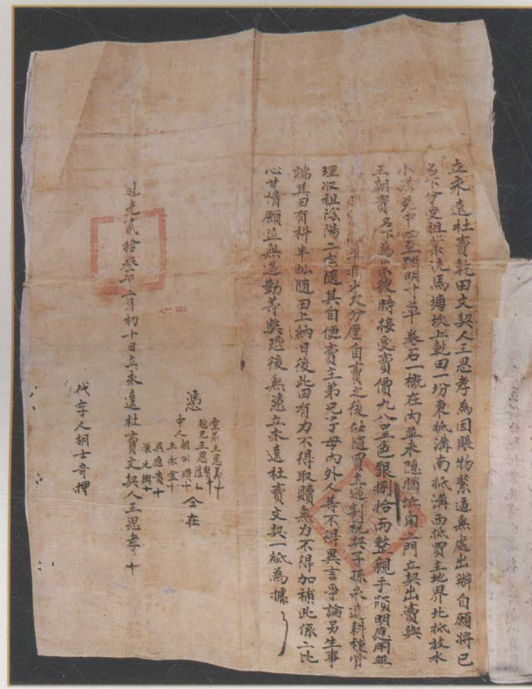 立永遠杜賣乾田文契人王恩孝為因賬物緊逼無處出辦自願將已
名下分受祖業洗馬塘坎上乾田一坋東抵溝南抵溝西抵買主地界北抵放水
小溝四至踩明寸草卷石一概在內並未隱瞞上門立契出賣與
王朝賓名下為彼時接受賣價九八色銀捌拾兩整親手領明應用並
少欠分厘自賣之後任隨買主過割稅契子孫永遠耕種管
理收租陰陽二宅隨其自便賣主弟兄子母內外人等不得異言爭論另生事
端其田有科米隨田上納日後此田有力不得取贖無力不得加補此係二比
心甘情願並無逼勒等弊恐後無憑立永遠杜賣文契一紙為據
憑
中人
堂弟王恩美十
胞兄王恩
胡公
王永
吳應貴十
元興十
仝在
道光貳拾叁年二月初十日立永遠杜賣文契人王恩孝十
代字人胡士奇押